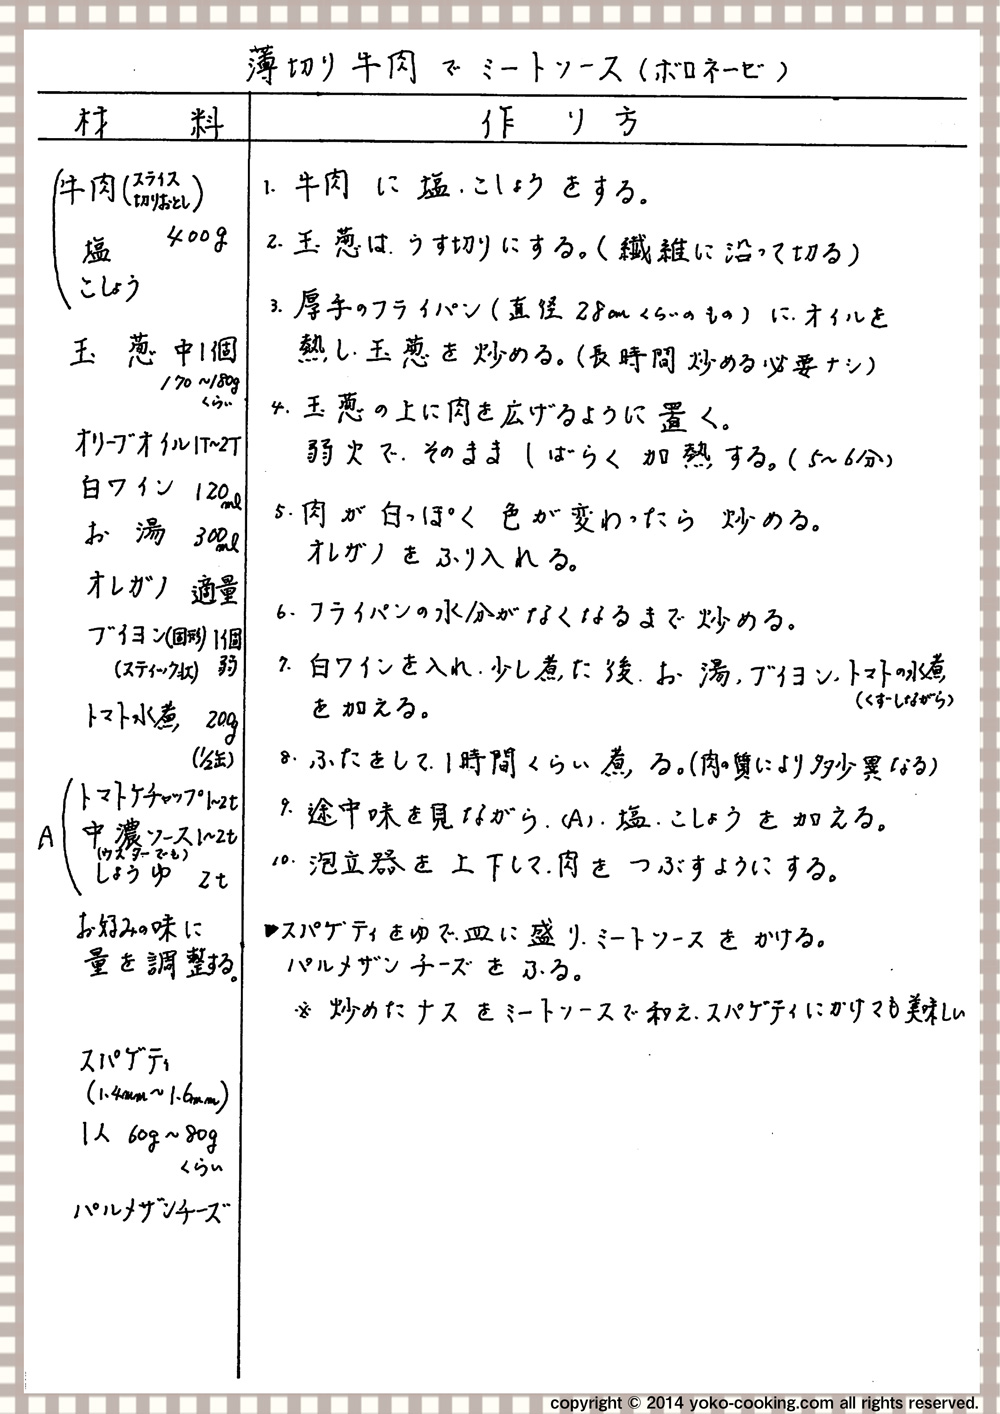 薄切り牛肉でミートソース(ボロネーゼ)
材料
牛肉(スライス切りおとし)
400g
塩
こしょう
玉葱 中1個
170~180g
くらい
オリーブオイル 1T~2T
白ワイン 120ml
お湯 300ml
オレガノ 適量
ブイヨン(固形) 1個弱
(スティック状)
トマト水煮 200g
(1/2缶)
A
トマトケチャップ 1~2t
中濃ソース 1~2t
(ウスターでも)
しょうゆ 2t
お好みの味に
量を調整する。
スパゲティ
(1.4mm~1.6mm)
1人 60g~80g
くらい
パルメザンチーズ
作り方
1. 牛肉に塩.こしょうをする。
2. 玉葱は.うす切りにする。(繊維に沿って切る)
3. 厚手のフライパン(直径28cmくらいのもの)に.オイルを
熱し.玉葱を炒める。(長時間炒める必要ナシ)
4. 玉葱の上に肉を広げるように置く。
弱火で.そのまましばらく加熱する。(5~6分)
5. 肉が白っぽく色が変わったら炒める。
オレガノをふり入れる。
6. フライパンの水分がなくなるまで炒める。
7. 白ワインを入れ.少し煮た後.お湯.ブイヨン.トマトの水煮
(くずしながら)
を加える。
8. ふたをして.1時間くらい煮る。(肉の質により多少異なる)
9. 途中味を見ながら.(A).塩.こしょうを加える。
10. 泡立器を上下して.肉をつぶすようにする。
▶スパゲティをゆで.皿に盛り.ミートソースをかける。
パルメザンチーズをふる。
※ 炒めたナスをミートソースで和え.スパゲティにかけても美味しい
copyright © 2014 yoko-cooking.com all rights reserved.